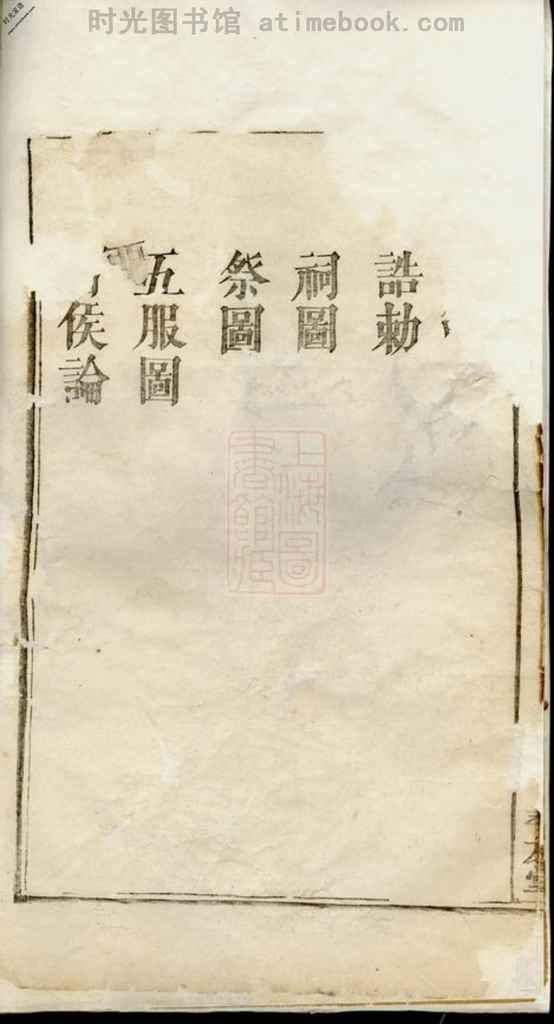 时光图书馆 atimebook.com
誥勅
祠圖
祭圖
五服圖
侯論
上海圖
書館藏